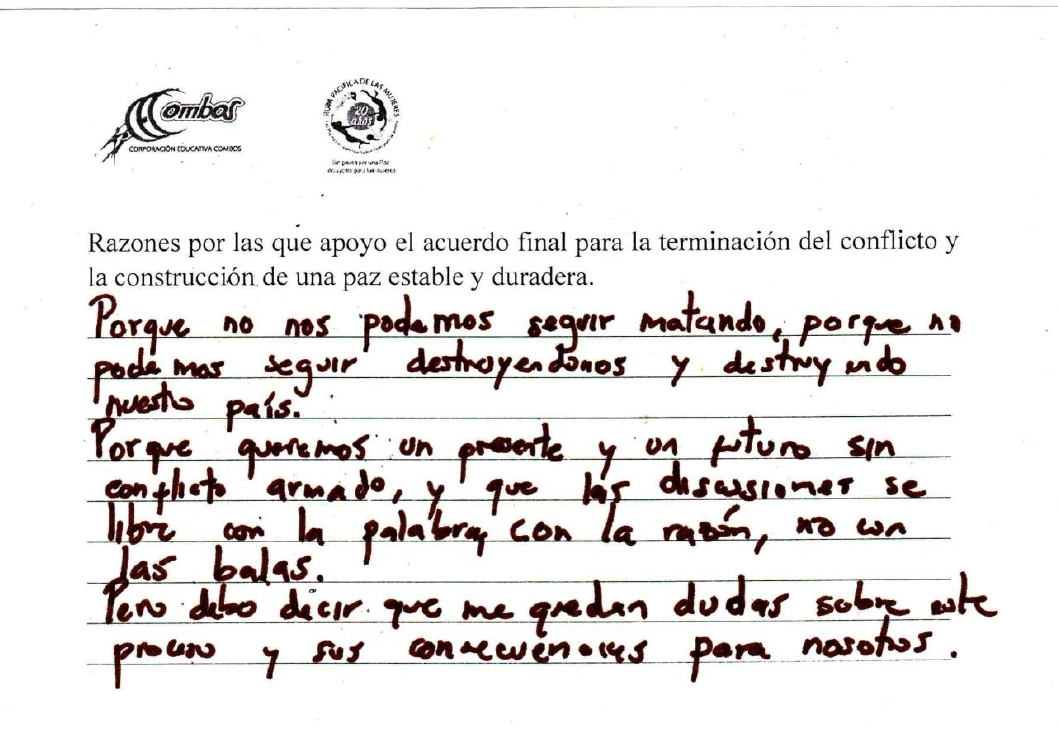 Combos
CORPORACIÓN EDUCATIVA COMBOS
RUTA PACÍFICA DE LAS MUJERES
20 años
Razones por las que apoyo el acuerdo final para la terminación del conflicto y
la construcción de una paz estable y duradera.
Porque no nos podemos seguir matando, porque no
podemos seguir destroyendonos y destruyendo
nuestro país.
Porque queremos un presente y un futuro sin
conflicto armado, y que las discusiones se
libre con la palabra, con la razón, no con
las balas.
Pero debo decir que me quedan dudas sobre este
proceso y sus consecuencias para nosotros.